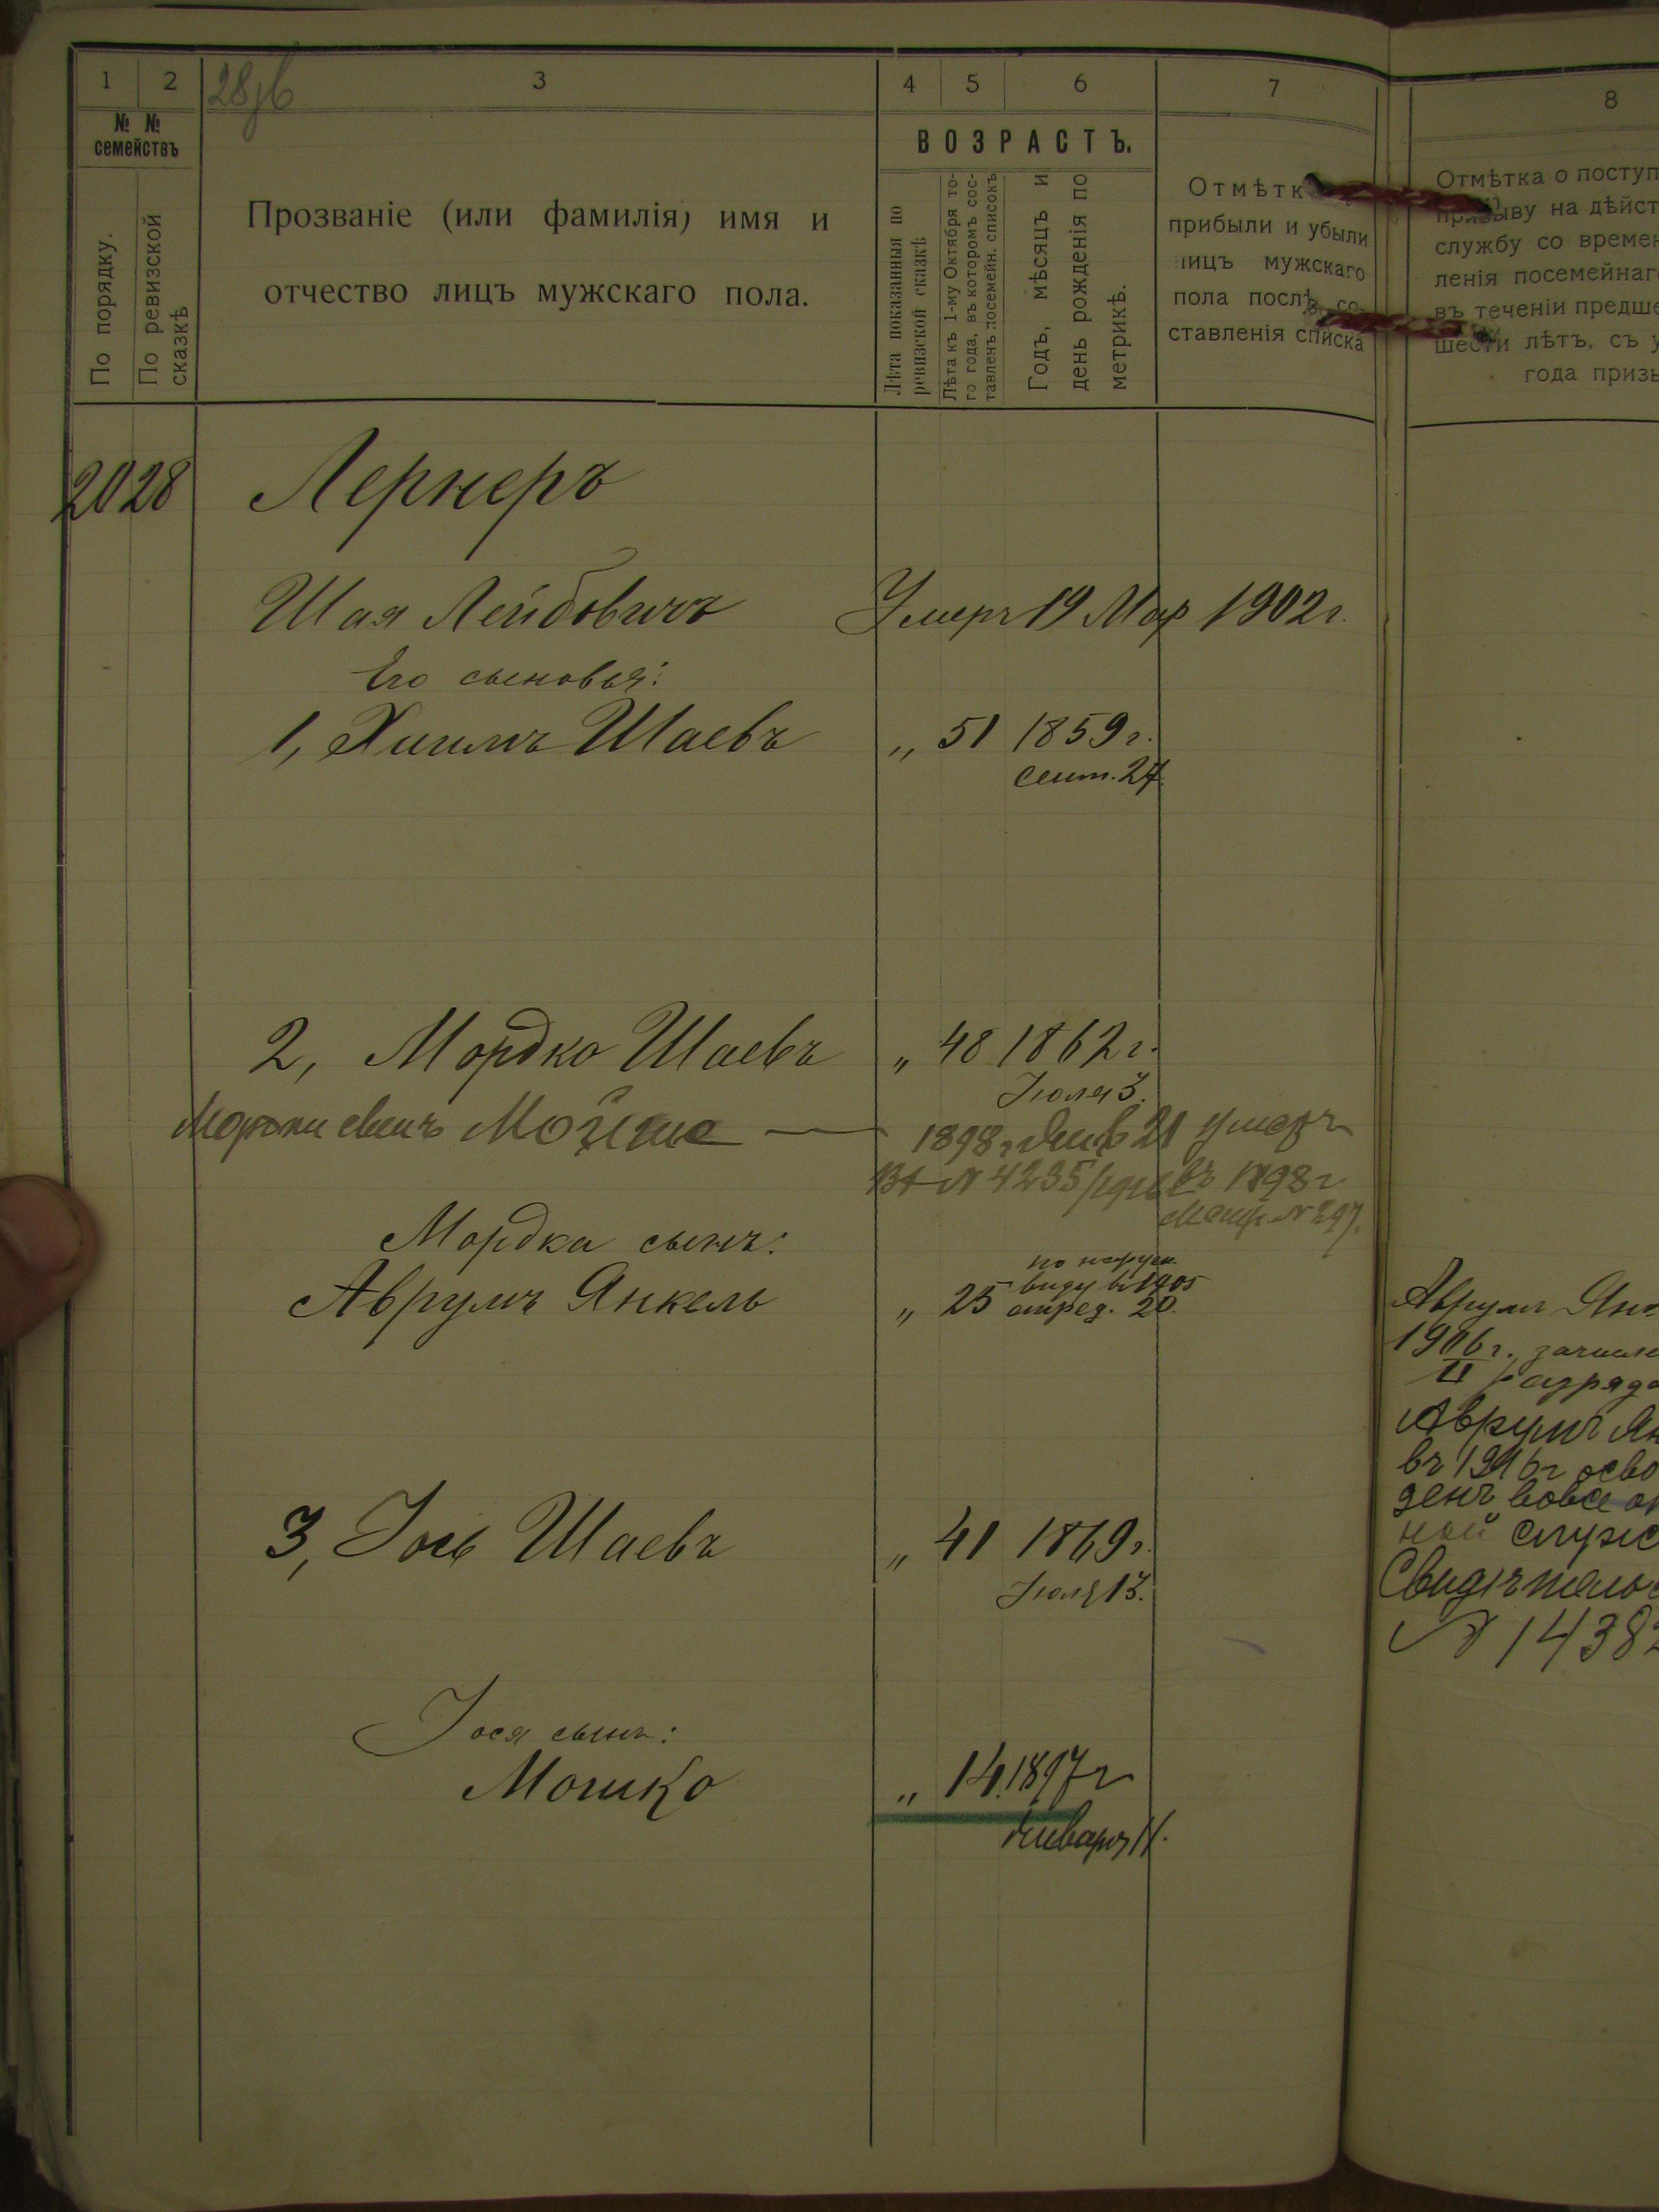 1 2 3 4 5 6 7 8
№ № семействъ
По порядку.
По ревизской сказкѣ
Прозваніе (или фамилія) имя и
отчество лицъ мужскаго пола.
ВОЗРАСТЪ.
Лѣта показанныя по
ревизской сказкѣ
Лѣта къ 1-му Октября то-
го года, въ которомъ сос-
тавленъ посемейн. списокъ
Годъ, мѣсяцъ и
день рожденія по
метрикѣ.
Отмѣтк
прибыли и убыли
лицъ мужскаго
пола послѣ со-
ставленія списка
Отмѣтка о поступ
призыву на дѣйст
службу со времен
ленія посемейнаг
въ теченіи предше
шести лѣтъ, съ у
года призы
2028 Лернеръ
Шая Лейбовичъ Умеръ 19 Мар 1902 г.
Его сыновья:
1, Хиимъ Шаевъ „ 51 1859 г.
сент. 27.
2, Мордко Шаевъ „ 48 1862 г.
Іюля 3.
Мошко 1898 г Янв 21 умеръ
№ 4235 въ 1898 г
№ 297.
Мордка сынъ:
Аврумъ Янкель „ 25 по наруж.
виду въ 1905
опред. 20.
3, Іось Шаевъ „ 41 1869 г.
Іюля 13.
Іося сынъ:
Мошко „ 14. 1897 г
Января 11.
Аврум Янк
1906 г. зачисле
II разряда
Аврумъ Ян
въ 1916 г осво
денъ вовсе от
ной служ
Свидѣтель
№ 1438